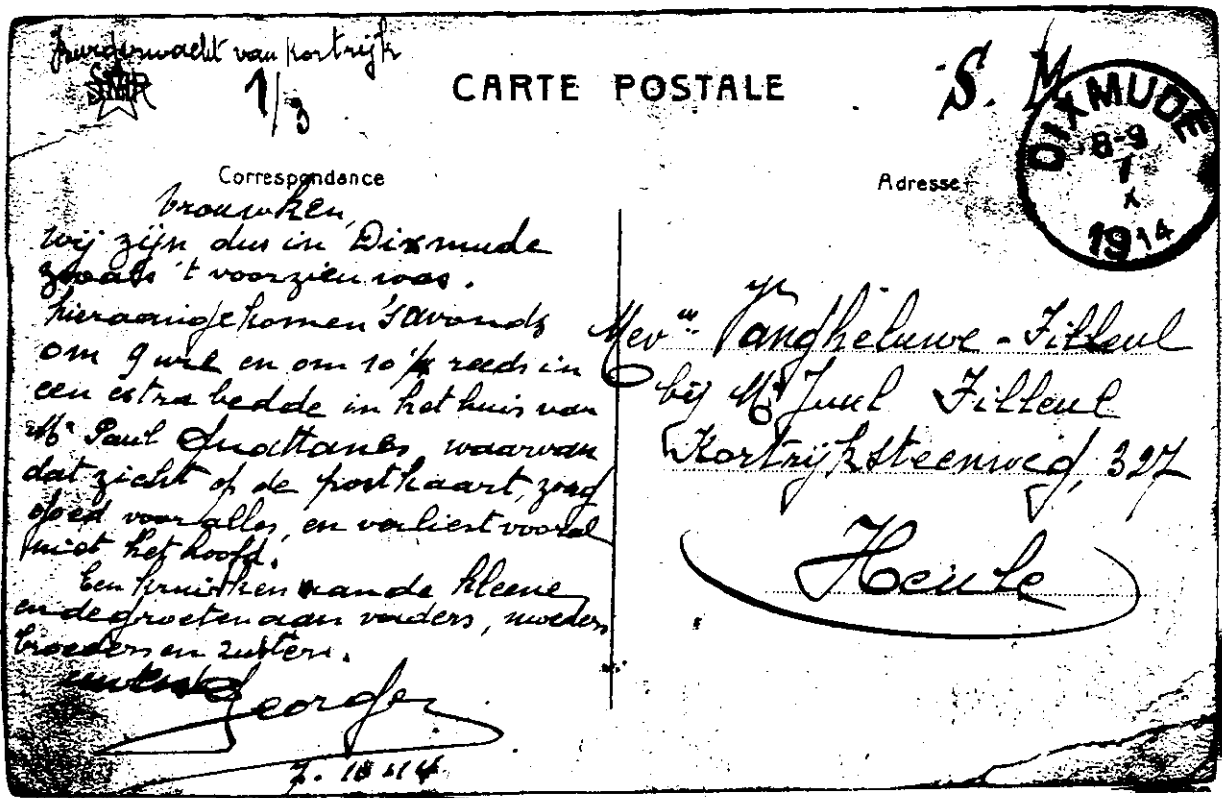 Burgerwacht van Kortrijk
1/3
CARTE POSTALE
S. M.
DIXMUDE
8-9
7
X
1914
Correspondance
Adresse
Vrouwken,
wij zijn dus in Dixmude
zooals 't voorzien was.
hier aangekomen 's avonds
om 9 ure en om 10 ½ reeds in
een extra bedde in het huis van
Mr Paul waarvan
dat zicht op de postkaart, zorg
goed voor alles, en verliest vooral
niet het hoofd.
Een kruisken aan de kleene
en de groeten aan vaders, moeders
broeders en zusters.
Georges
7. 10. 14
Mevw Vangheluwe - Filleul
bij Mr Juul Filleul
Kortrijksteenweg, 327
Heule